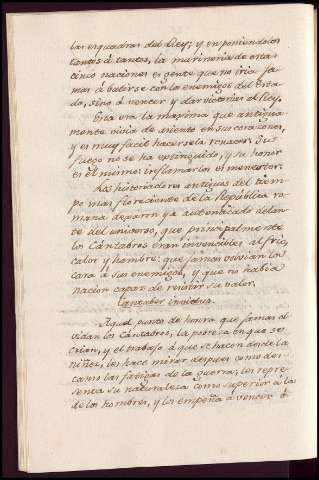 las esquadras del Rey; y en poniendolos
tantos á tantos, la marineria de estas
cinco naciones es gente que no iria ja-
mas á batirse con los enemigos del Esta-
do, sino á vencer y dar victorias al Rey.
Esta era la maxima que antigua-
mente vivia de asiento en sus corazones,
y es muy facil hacersela renacer. Su
fuego no se ha extinguido, y su honor
es el mismo: inflamarlos es menester.
Los historiadores antiguos del tiem-
po mas floreciente de la República ro-
mana dejaron ya autenticado delan-
te del universo, que principalmente
los Cántabros eran invencibles al frio,
calor y hambre: que jamas volvian la
cara á sus enemigos, y que no habia
nacion capaz de resistir su valor.
Cantaber invictus.
Aquel punto de honra que jamas ol-
vidan los Cántabros, la pobreza en que se
crian, y el trabajo á que se hacen desde la
niñez, les hace mirar despues como des-
canso las fatigas de la guerra, les repre-
senta su naturaleza como superior á la
de los hombres, y los empeña á vencer ó